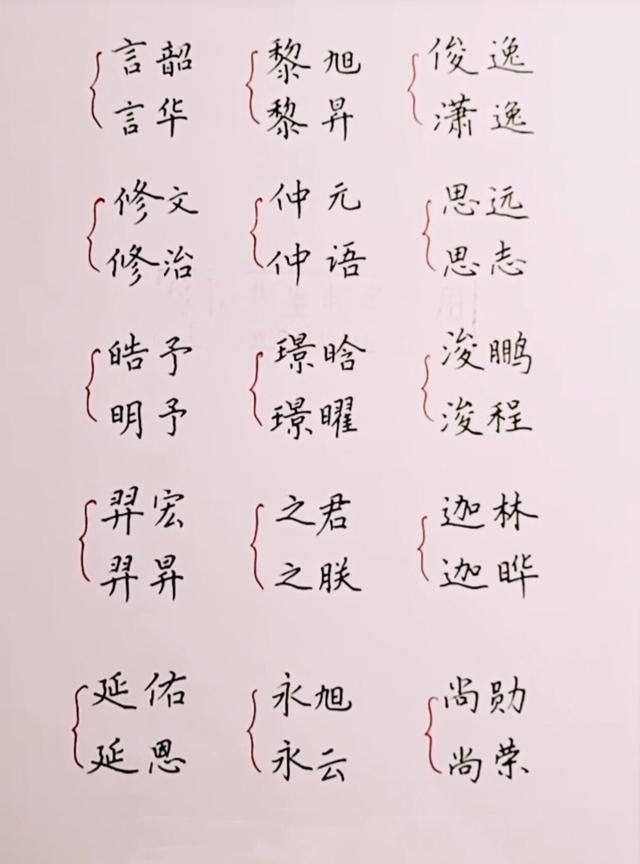 言韶 黎旭 俊逸
言华 黎昇 潇逸
修文 仲元 思远
修治 仲语 思志
皓予 璟晗 浚鹏
明予 璟曜 浚程
羿宏 之君 迦林
羿昇 之朕 迦晔
延佑 永旭 尚勋
延恩 永云 尚荣